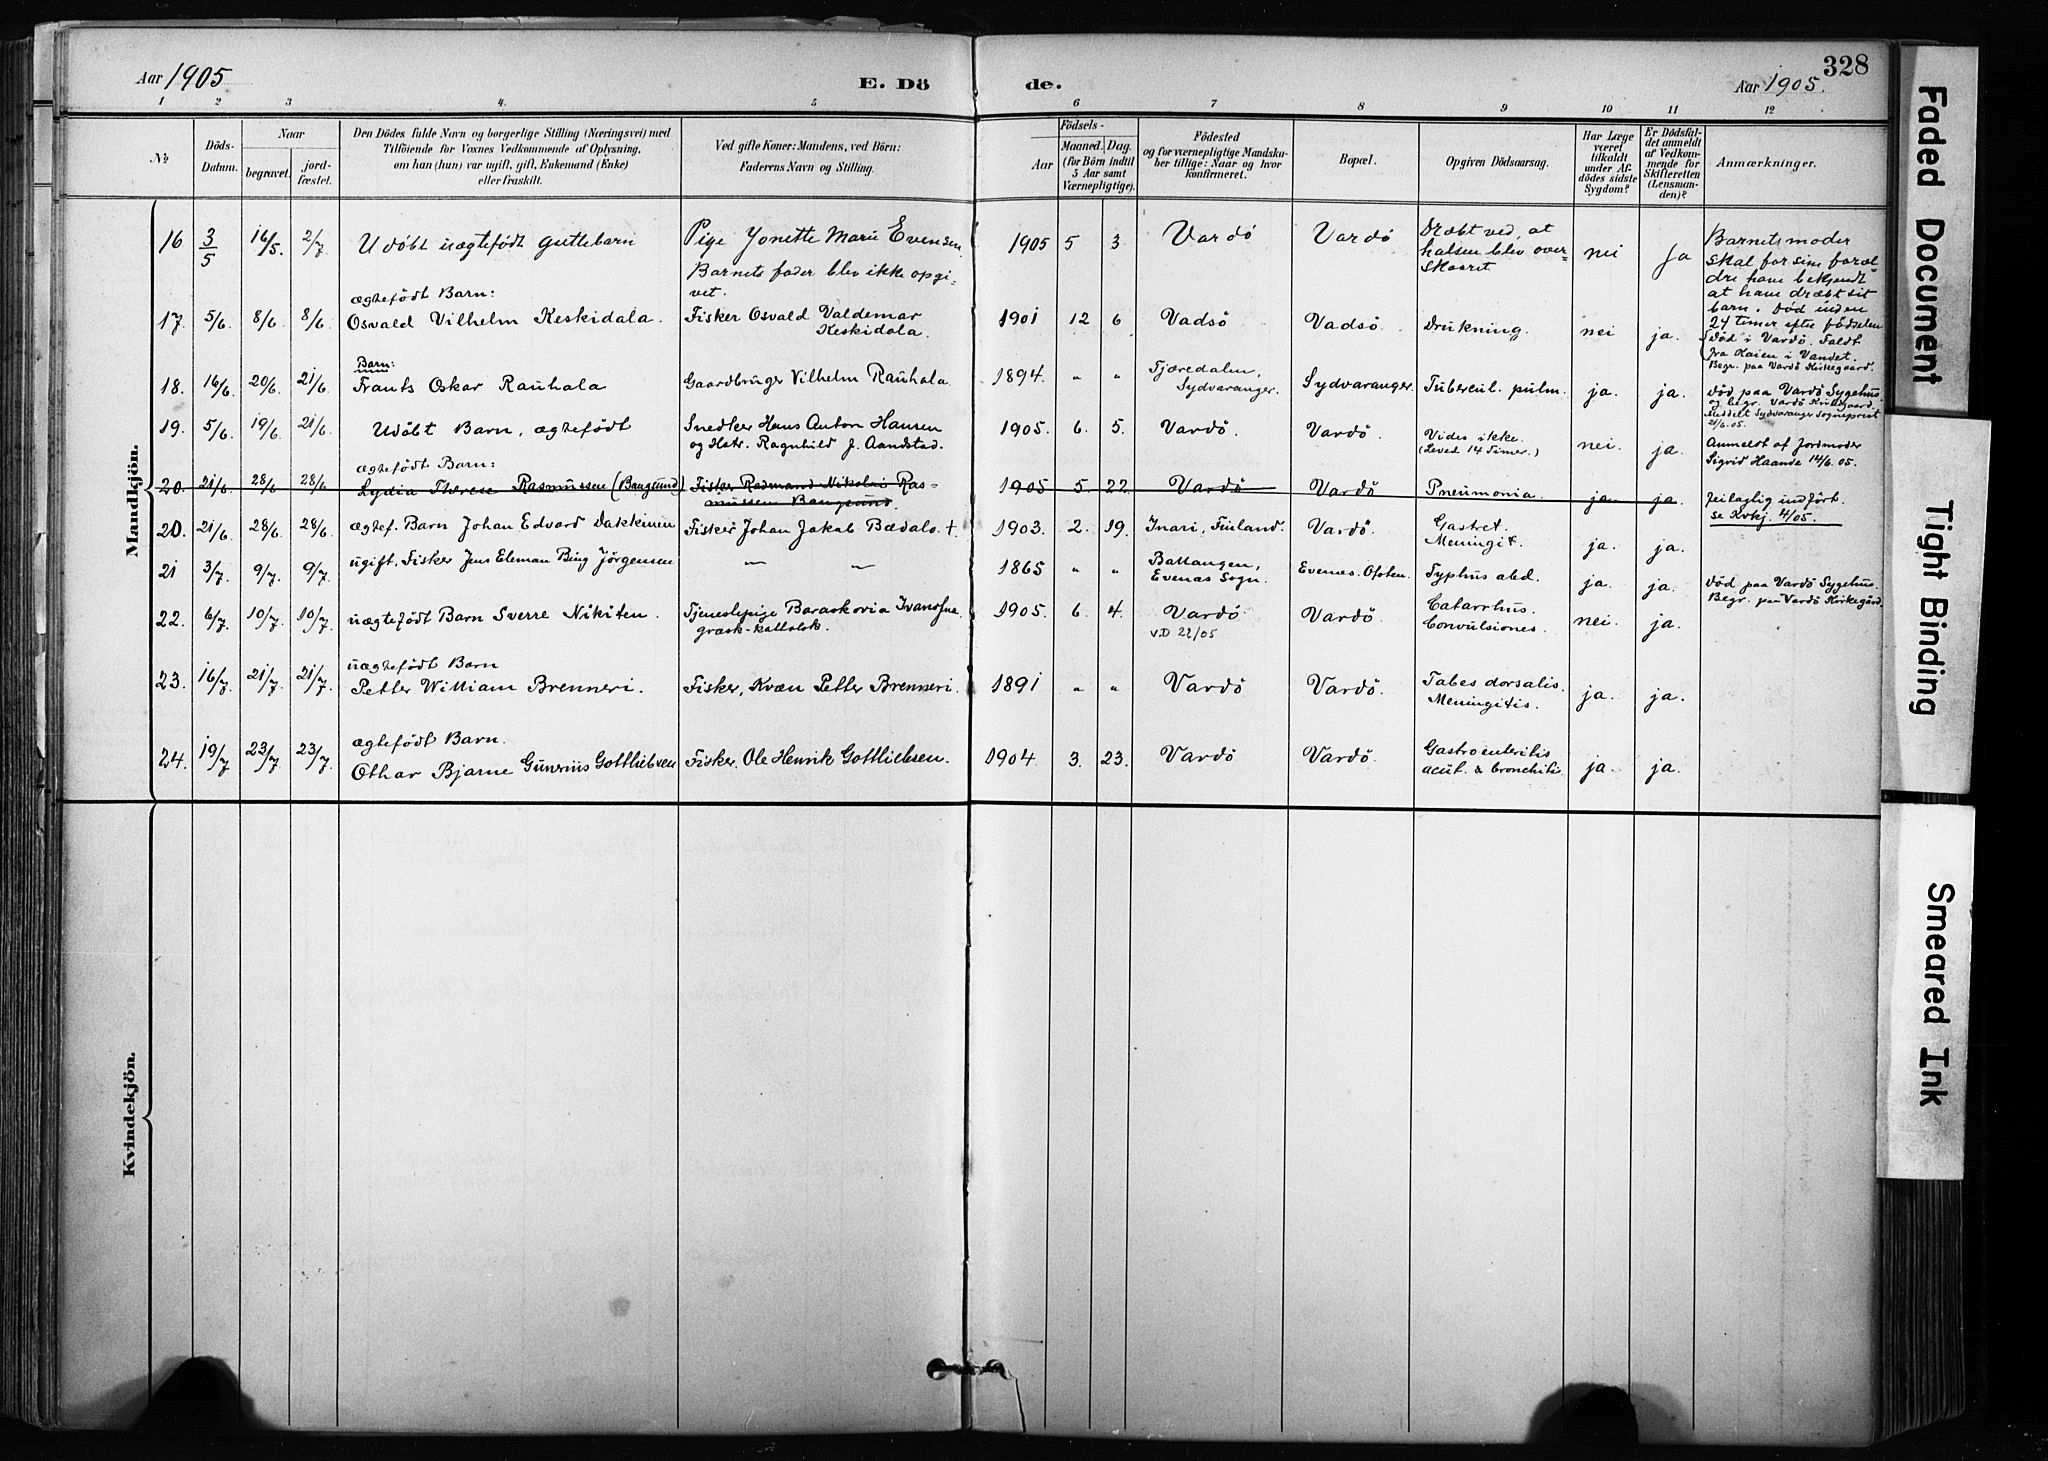 Aar 1905
E. Dö
de.
Aar 1905.
328
1 2 3 4. 5 6 7 8 9 10 11 12
№
Döds-
Datum.
Naar
begravet.
jord-
fæstet.
Den Dödes fulde Navn og borgerlige Stilling (Næringsvei) med
Tilföiende for Voxnes Vedkommende af Oplysning,
om han (hun) var ugift, gift, Enkemand (Enke)
eller fraskilt.
Ved gifte Koner: Mandens, ved Börn:
Faderens Navn og Stilling.
Födsels-
Aar
Maaned. Dag.
(for Börn indtil
5 Aar samt
Værnepligtige).
Födested
og for værnepligtige Mandska-
ber tillige: Naar og hvor
konfirmeret.
Bopæl.
Opgiven Dödsaarsag.
Har Læge
været
tilkaldt
under Af-
dödes sidste
Sygdom?
Er Dödsfal-
det anmeldt
af Vedkom-
mende for
Skifteretten
(Lensman-
den)?
Anmærkninger.
Mandkjön.
16 3/5 16/5. 2/7 Udöbt uægtefödt guttebarn
Pige Jonette Marie Evensen.
Barnets fader blev ikke opgi-
vet.
1905 5 3 Vardö Vardö
Dræbt ved, at
halsen blev over-
skaaret
nei Ja
Barnets moder
skal for sine foræl-
dre have bekjendt
at have dræbt sit
barn. Død inden
24 timer efter födselen
17. 5/6. 8/6 8/6
ægtefödt Barn:
Osvald Vilhelm Keskidala.
Fisker Osvald Valdemar
Keskidala.
1901 12 6 Vadsö Vadsö. Drukning. nei ja.
Död i Vardö. Faldt
fra Kaien i Vandet.
Begr. paa Vardö Kirkegaard.
18. 16/6. 20/6. 21/6
Barn:
Frants Oskar Rauhala
Gaardbruger Vilhelm Rauhala.
1894. " "
Fjæredalen,
Sydvaranger.
Sydvaranger. Tubercul. pulm. ja. ja.
död paa Vardö Sygehus.
og begr. Vardö Kirkegaard.
Meddelt Sydvaranger Sogneprest
21/6.05.
19. 5/6. 19/6 21/6 Udöbt Barn, ægtefödt
Snedker Hans Anton Hansen
og Hstr. Ragnhild J. Aandstad.
1905. 6. 5. Vardö. Vardö.
Vides ikke.
(Leved 14 Timer.)
nei. ja.
Anmeldt af Jordmoder
Sigrid Haande 14/6.05.
20. 21/6 28/6 28/6
ægtefödt Barn:
Lydia Therese Rasmussen (Baugsund)
Fisker Redmand Nikolai Ras-
mussen Baugsund.
1905 5. 22. Vardö Vardö Pneumonia. ja ja.
feilaglig indfört.
se Kvkj. 4/05.
20. 21/6. 28/6 28/6 ægtef. Barn Johan Edvard Dakkinen
Fisker Johan Jakob Bædalo. +.
1903. 2. 19. Inari, Finland. Vardö.
Gastret.
Meningit.
ja. ja.
21 3/7. 9/7 9/7 ugift, Fisker Jens Eleman Bing Jörgensen — —
1865 " "
Ballangen,
Evenæs Sogn.
Evenæs. Ofoten. Typhus abd. ja. ja.
död paa Vardö Sygehus.
Begr. paa Vardö Kirkegård.
22. 6/7. 10/7 10/7 uægtefödt Barn Sverre Nikiten.
Tjenestepige Baraskovia Ivanofna
græsk-katholsk.
1905. 6. 4. Vardö
V.D 22/05
Vardö.
Catarrhus.
Convulsiones.
nei. ja.
23. 16/7 21/7 21/7.
uægtefödt Barn
Petter William Brenneri.
Fisker, Kvæn Petter Brenneri.
1891 " " Vardö Vardö.
Tabes dorsalis.
Meningitis.
ja. ja.
24. 19/7 23/7 23/7.
ægtefödt Barn.
Othar Bjarne Gunerius Gottliebsen
Fisker. Ole Henrik Gottliebsen.
1904 3. 23. Vardö Vardö.
Gastroenteritis
acut. & bronchitis
ja. ja.
Kvindekjön.
Faded Document
Tight Binding
Smeared Ink